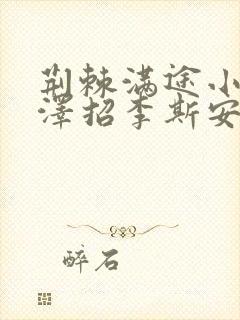 荆棘满途小
泽招李斯安
醉石